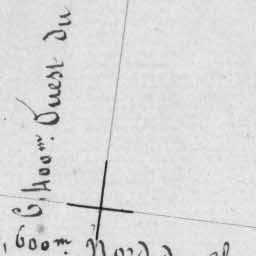 6,400m. Ouest du
,600m. Nord